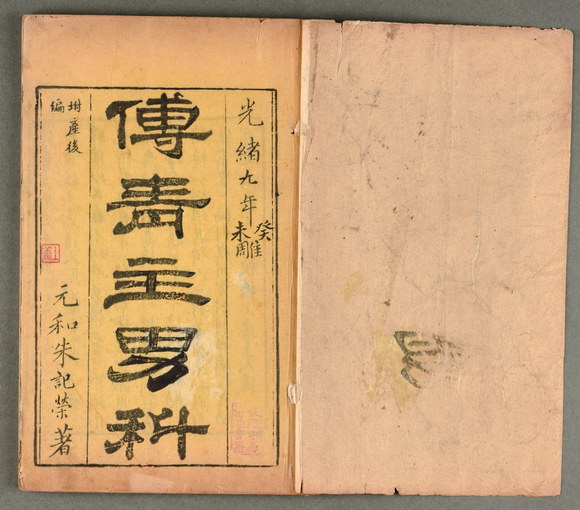 光緒九年癸未雕
傅青主男科
坿產後
編
元和朱記榮著